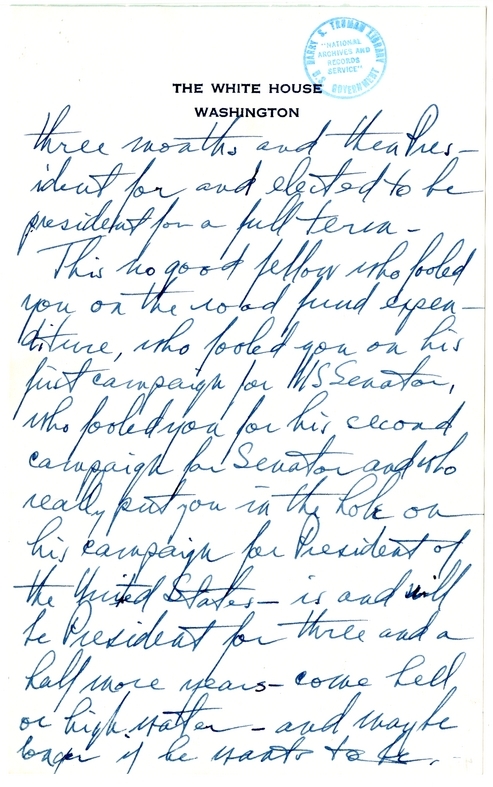 HARRY S. TRUMAN LIBRARY
"NATIONAL
ARCHIVES AND
RECORDS
SERVICE"
U.S. GOVERNMENT
THE WHITE HOUSE
WASHINGTON
three months and then Pres-
ident for and elected to be
president for a full term -
This no good fellow who fooled
you on the road fund expen-
diture, who fooled you on his
first campaign for US Senator,
who fooled you for his second
campaign for Senator and who
really put you in the hole on
his campaign for President of
the United States - is and will
be President for three and a
half more years - come hell
or high watter - and maybe
longer if he wants to be. -